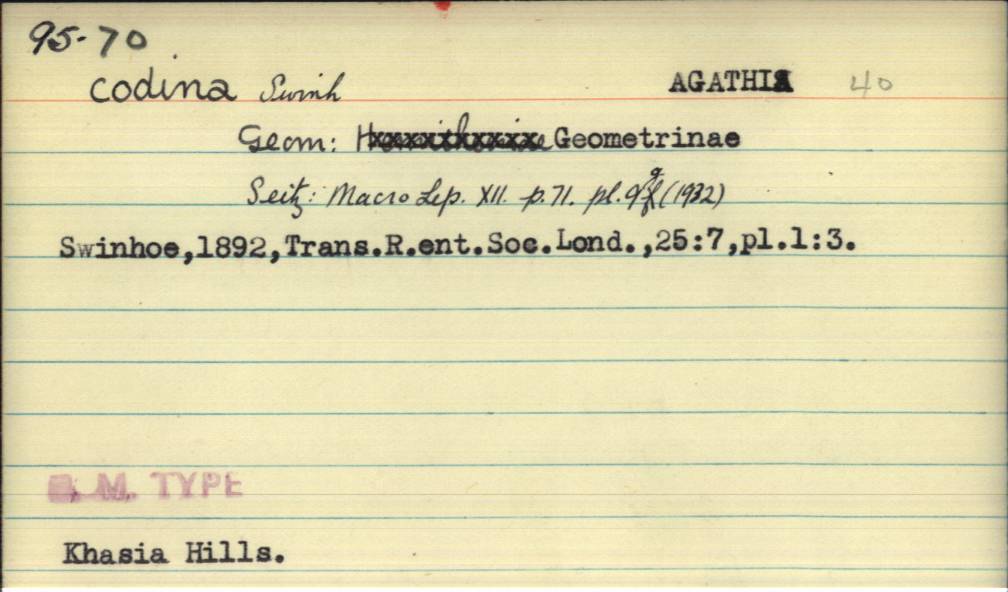 95-70
codina Swinh AGATHIA 40
Geom: Geometrinae
Seitz: Macro Lep. XII. p.71. pl. 9g (1932)
Swinhoe,1892,Trans.R.ent.Soc.Lond.,25:7,pl.1:3.
B. M. TYPE
Khasia Hills.